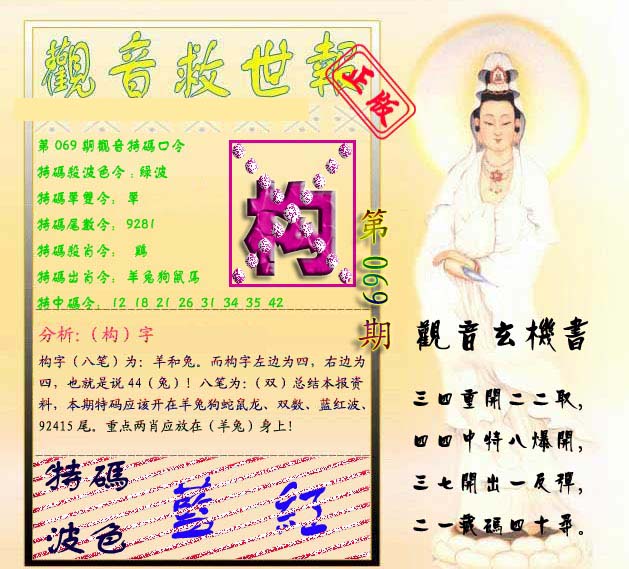 觀音救世報
正版
第069期觀音特碼口令
特碼殺波色令：綠波
特碼單雙令： 單
特碼尾數令： 9281
特碼殺肖令： 鷄
特碼出肖令： 羊兔狗鼠馬
特中碼令： 12 18 21 26 31 34 35 42
构
第069期
分析：（构）字
构字（八笔）为：羊和兔。而构字左边为四，右边为
四，也就是说44（兔）！八笔为：（双）总结本报资
料，本期特码应该开在羊兔狗蛇鼠龙、双数、蓝红波、
92415尾。重点两肖应放在（羊兔）身上！
特碼
波色
藍 紅
觀音玄機書
三四重開二二取，
四四中特八爆開，
三七開出一反彈，
二一載碼四十尋。